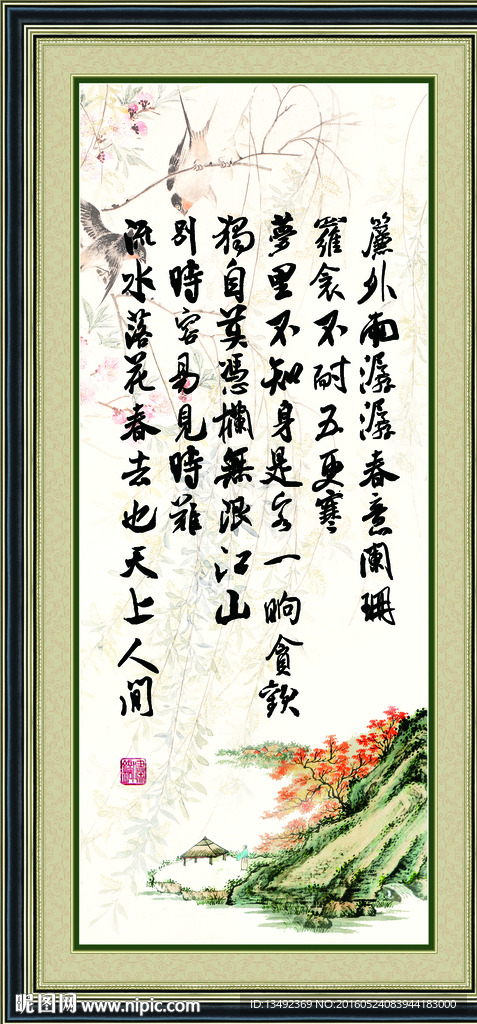 簾外雨潺潺春意闌珊
羅衾不耐五更寒
夢里不知身是客一晌貪歡
獨自莫憑欄無限江山
別時容易見時難
流水落花春去也天上人間
昵图网 www.nipic.com
ID:13492369 NO:20160524083944183000